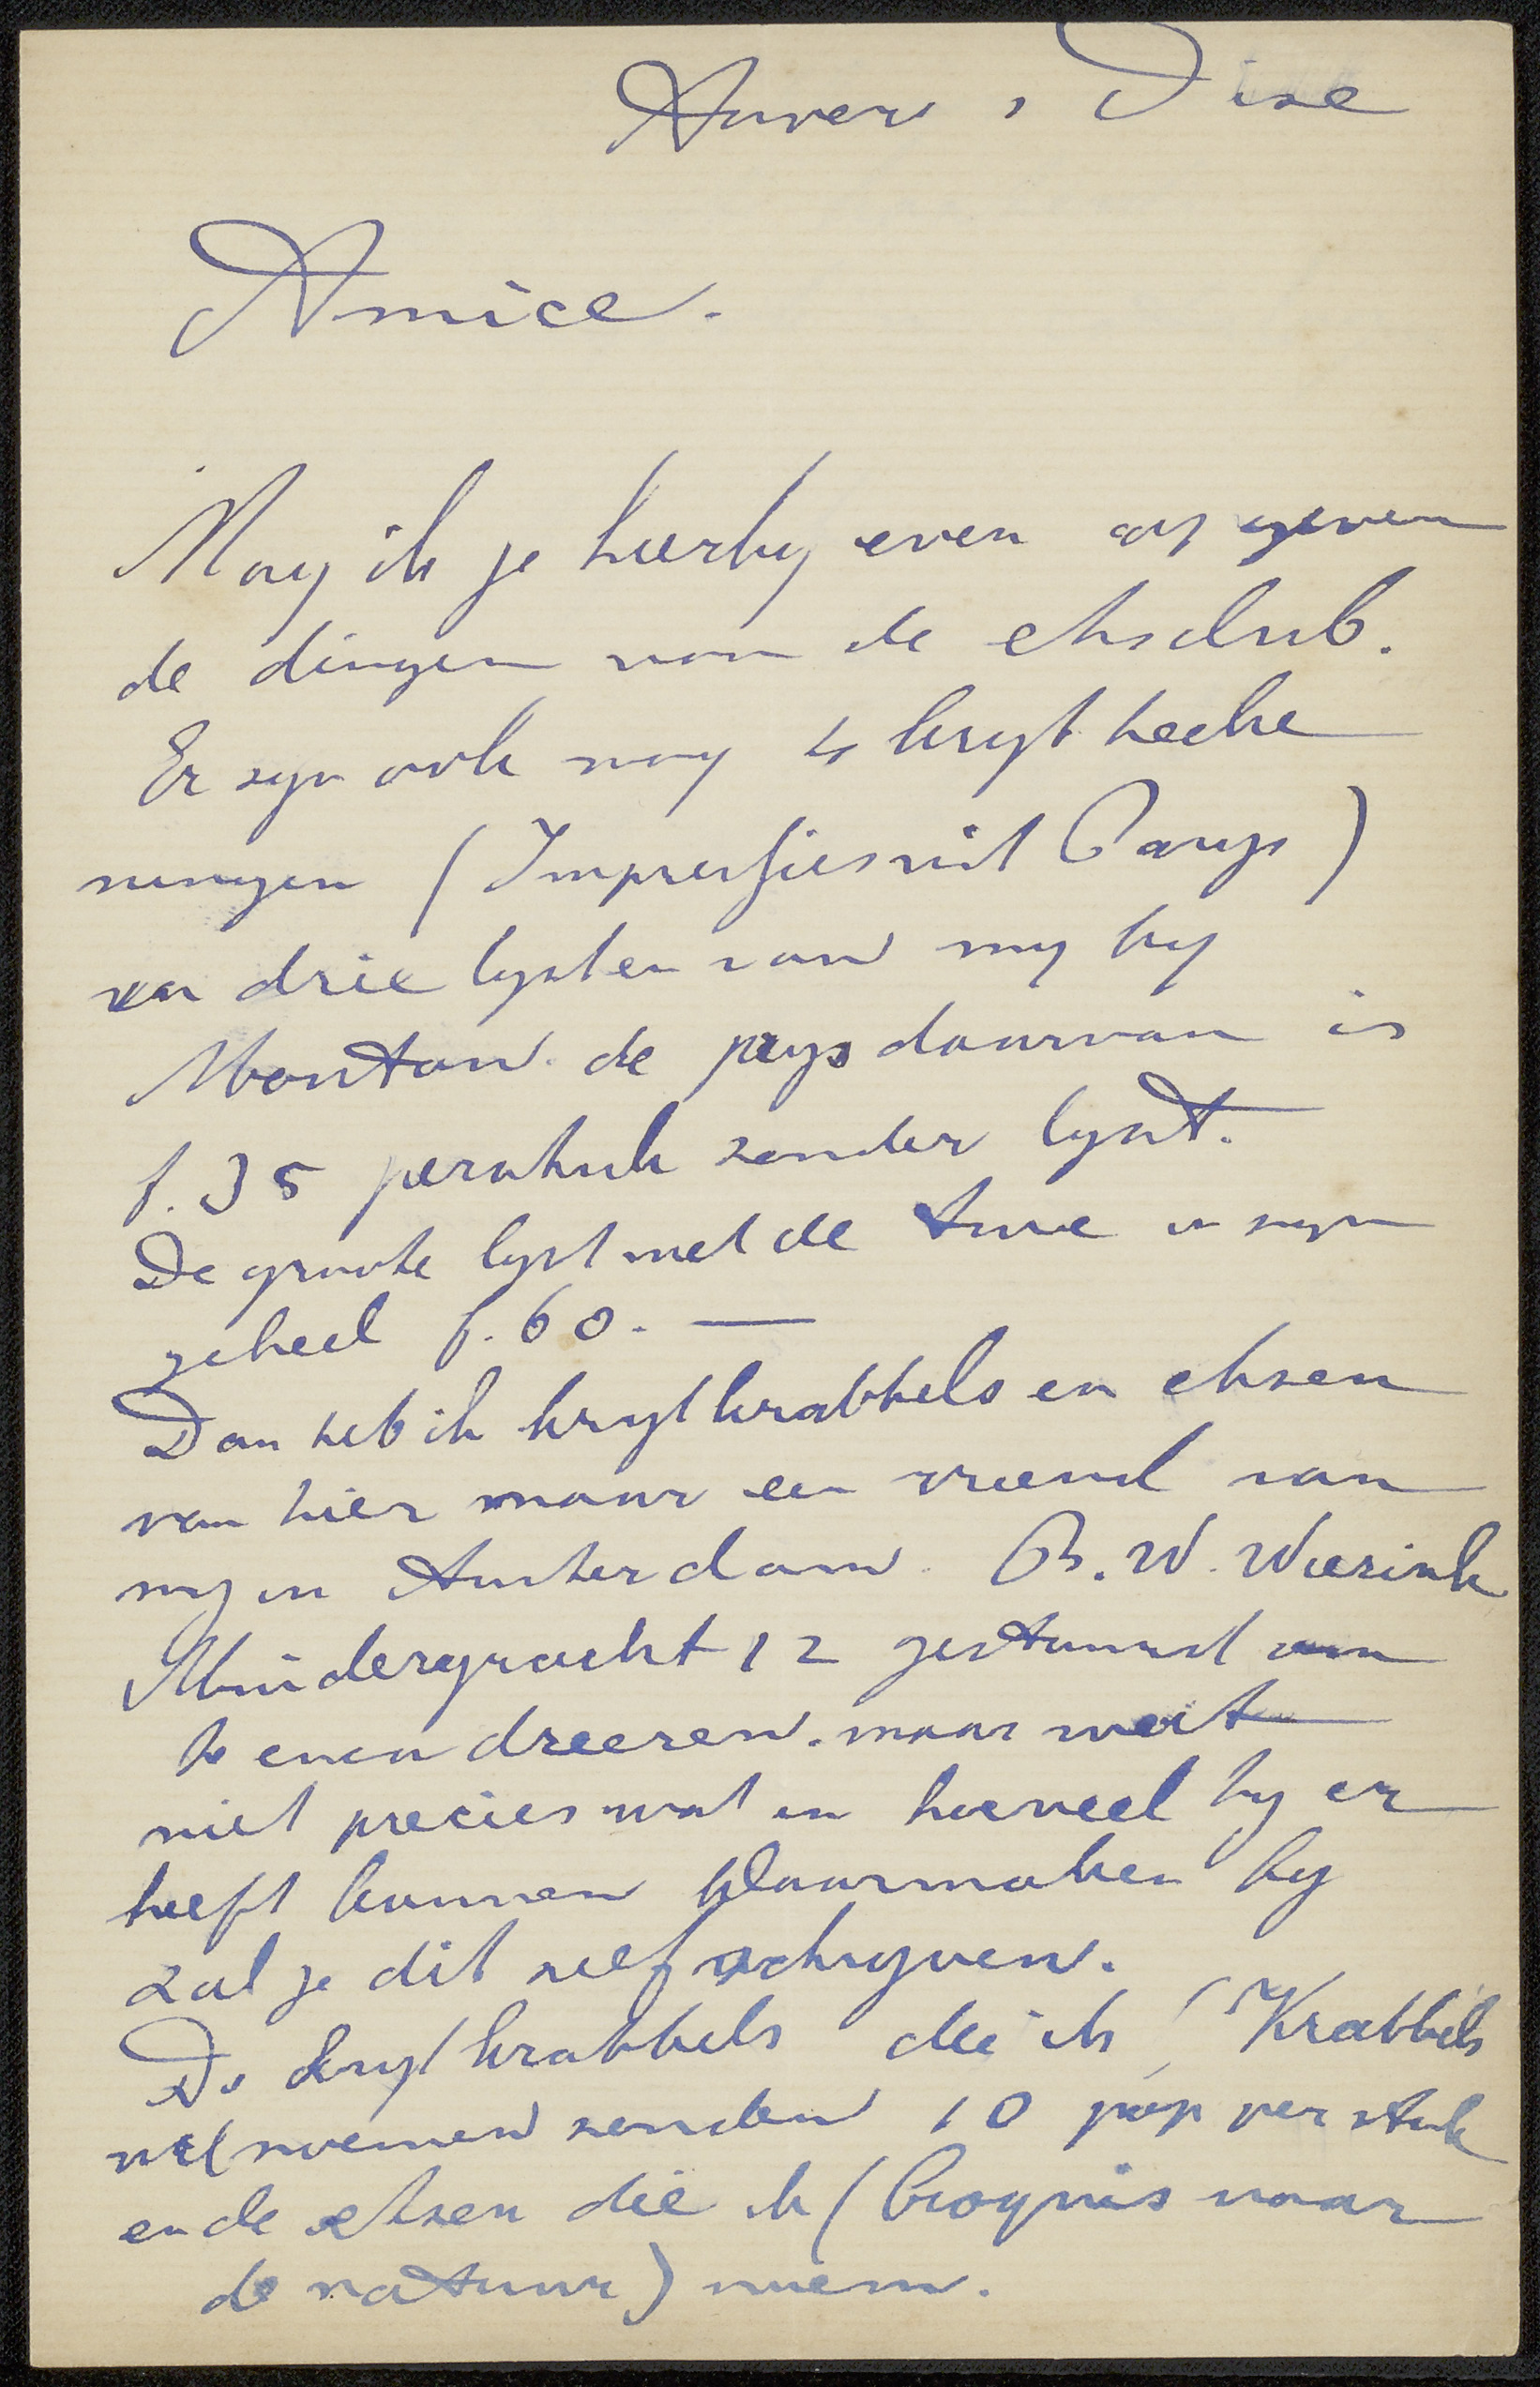 Anvers s/ Oise
Amice.
Mag ik je hierby even opgeven
de dingen van de etsclub.
Er zyn ook nog 4 kryt teeke
ningen (Impressies uit Parys)
en drie lysten van my by
Mouton. de prys daarvan is
f. 35 perstuk zonder lyst.
De groote lyst met de twee in zyn
geheel f. 60. —
Dan heb ik krytkrabbels en etsen
van hier maar een vriend van
my in Amsterdam. B. W. Wierink
Muidergracht 12 gestuurd om
te encadreeren. maar weet
niet precies wat en hoeveel hy er
heeft kunnen klaarmaken hy
zal je dit zelf schryven.
De krytkrabbels die ik (Krabbels
wil noemen zenden 10 pop per stuk
en de etsen die ik (Croquis naar
de natuur) noem.